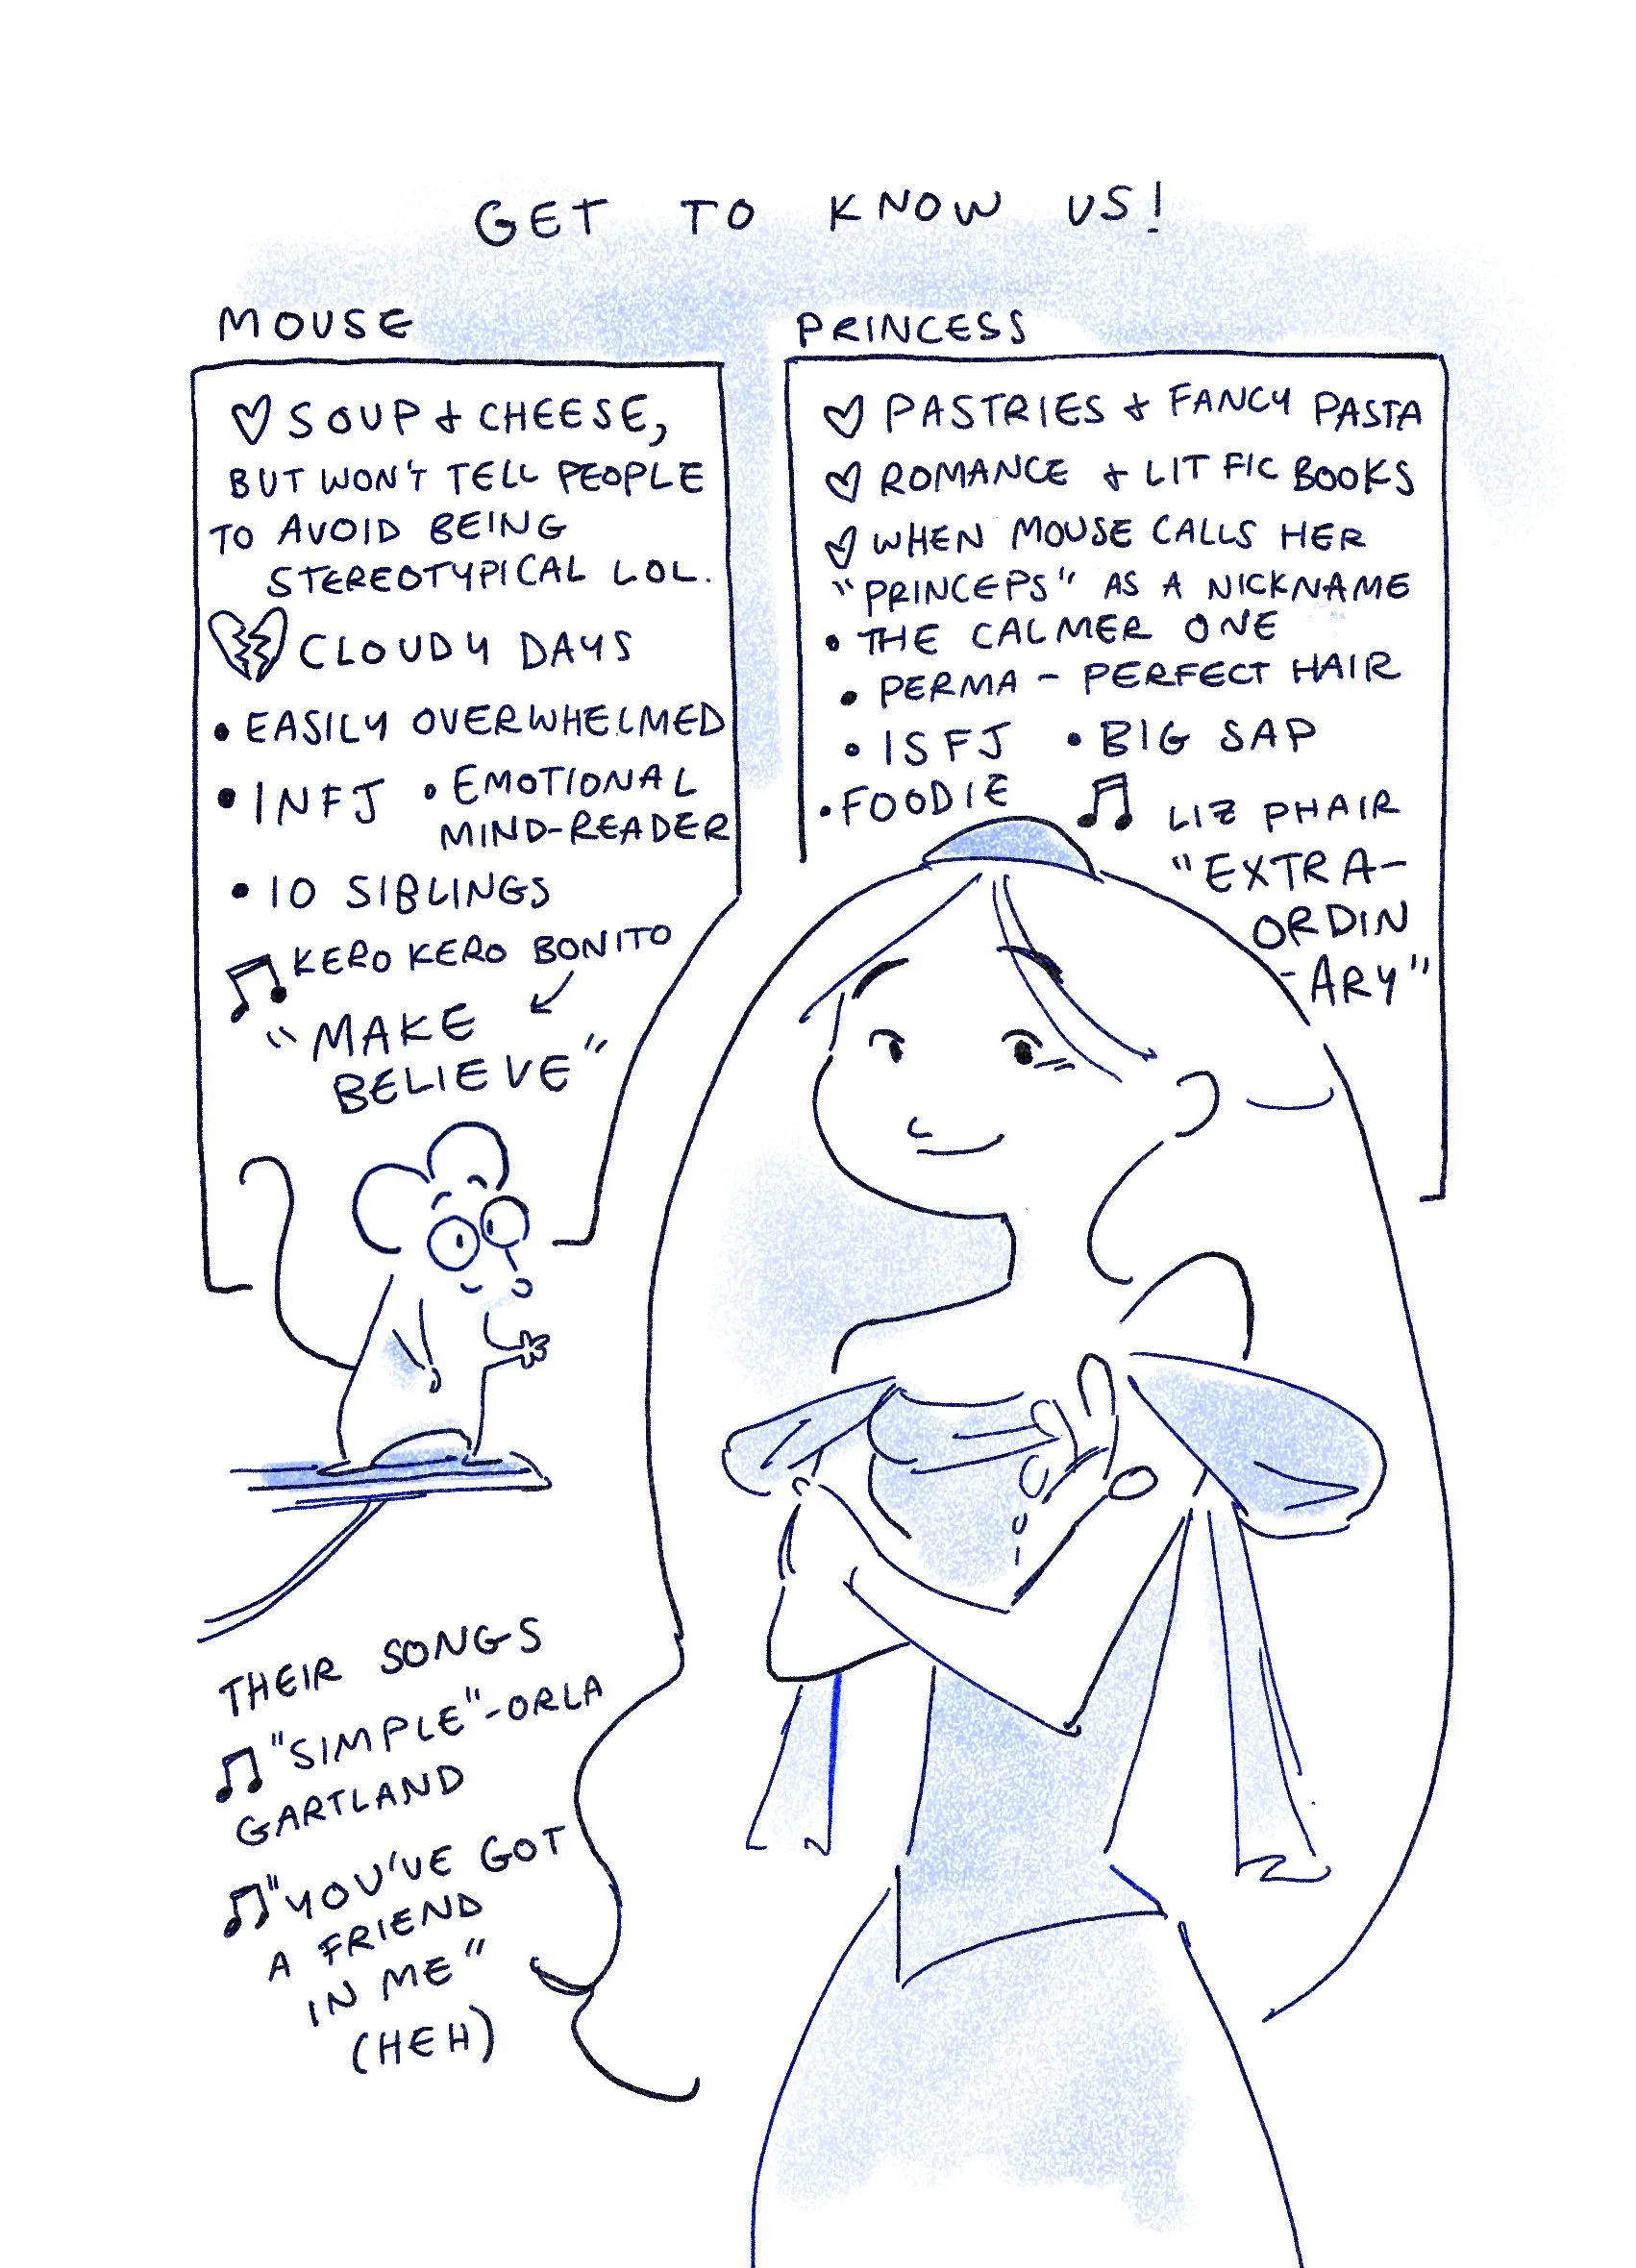 GET TO KNOW US!
MOUSE
♡ SOUP & CHEESE,
BUT WON'T TELL PEOPLE
TO AVOID BEING
STEREOTYPICAL LOL.
💔 CLOUDY DAYS
• EASILY OVERWHELMED
• INFJ • EMOTIONAL
MIND-READER
• 10 SIBLINGS
♫ KERO KERO BONITO
"MAKE
BELIEVE"
PRINCESS
♡ PASTRIES & FANCY PASTA
♡ ROMANCE & LIT FIC BOOKS
♡ WHEN MOUSE CALLS HER
"PRINCEPS" AS A NICKNAME
• THE CALMER ONE
• PERMA-PERFECT HAIR
• ISFJ • BIG SAP
• FOODIE ♫ LIZ PHAIR
"EXTRA-
ORDIN
-ARY"
THEIR SONGS
♫ "SIMPLE"-ORLA
GARTLAND
♫ "YOU'VE GOT
A FRIEND
IN ME"
(HEH)